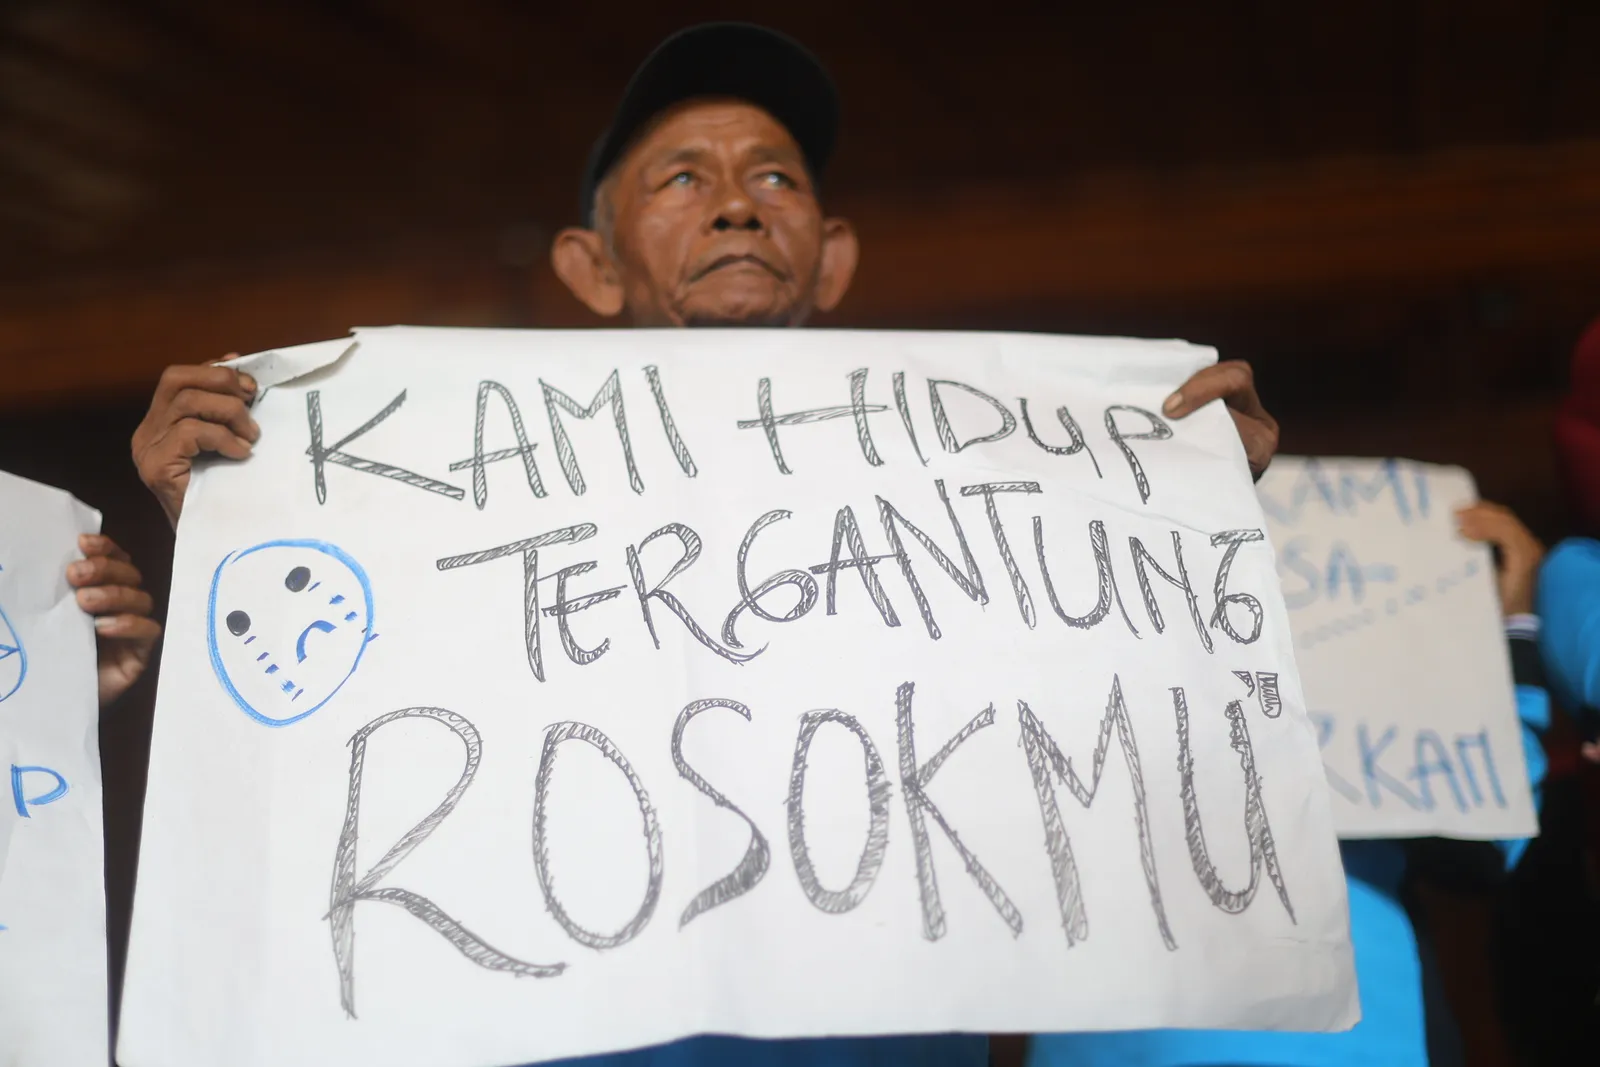 KAMI HIDUP
TERGANTUNG
ROSOKMU"
KAMI
SA-
RKAM
P